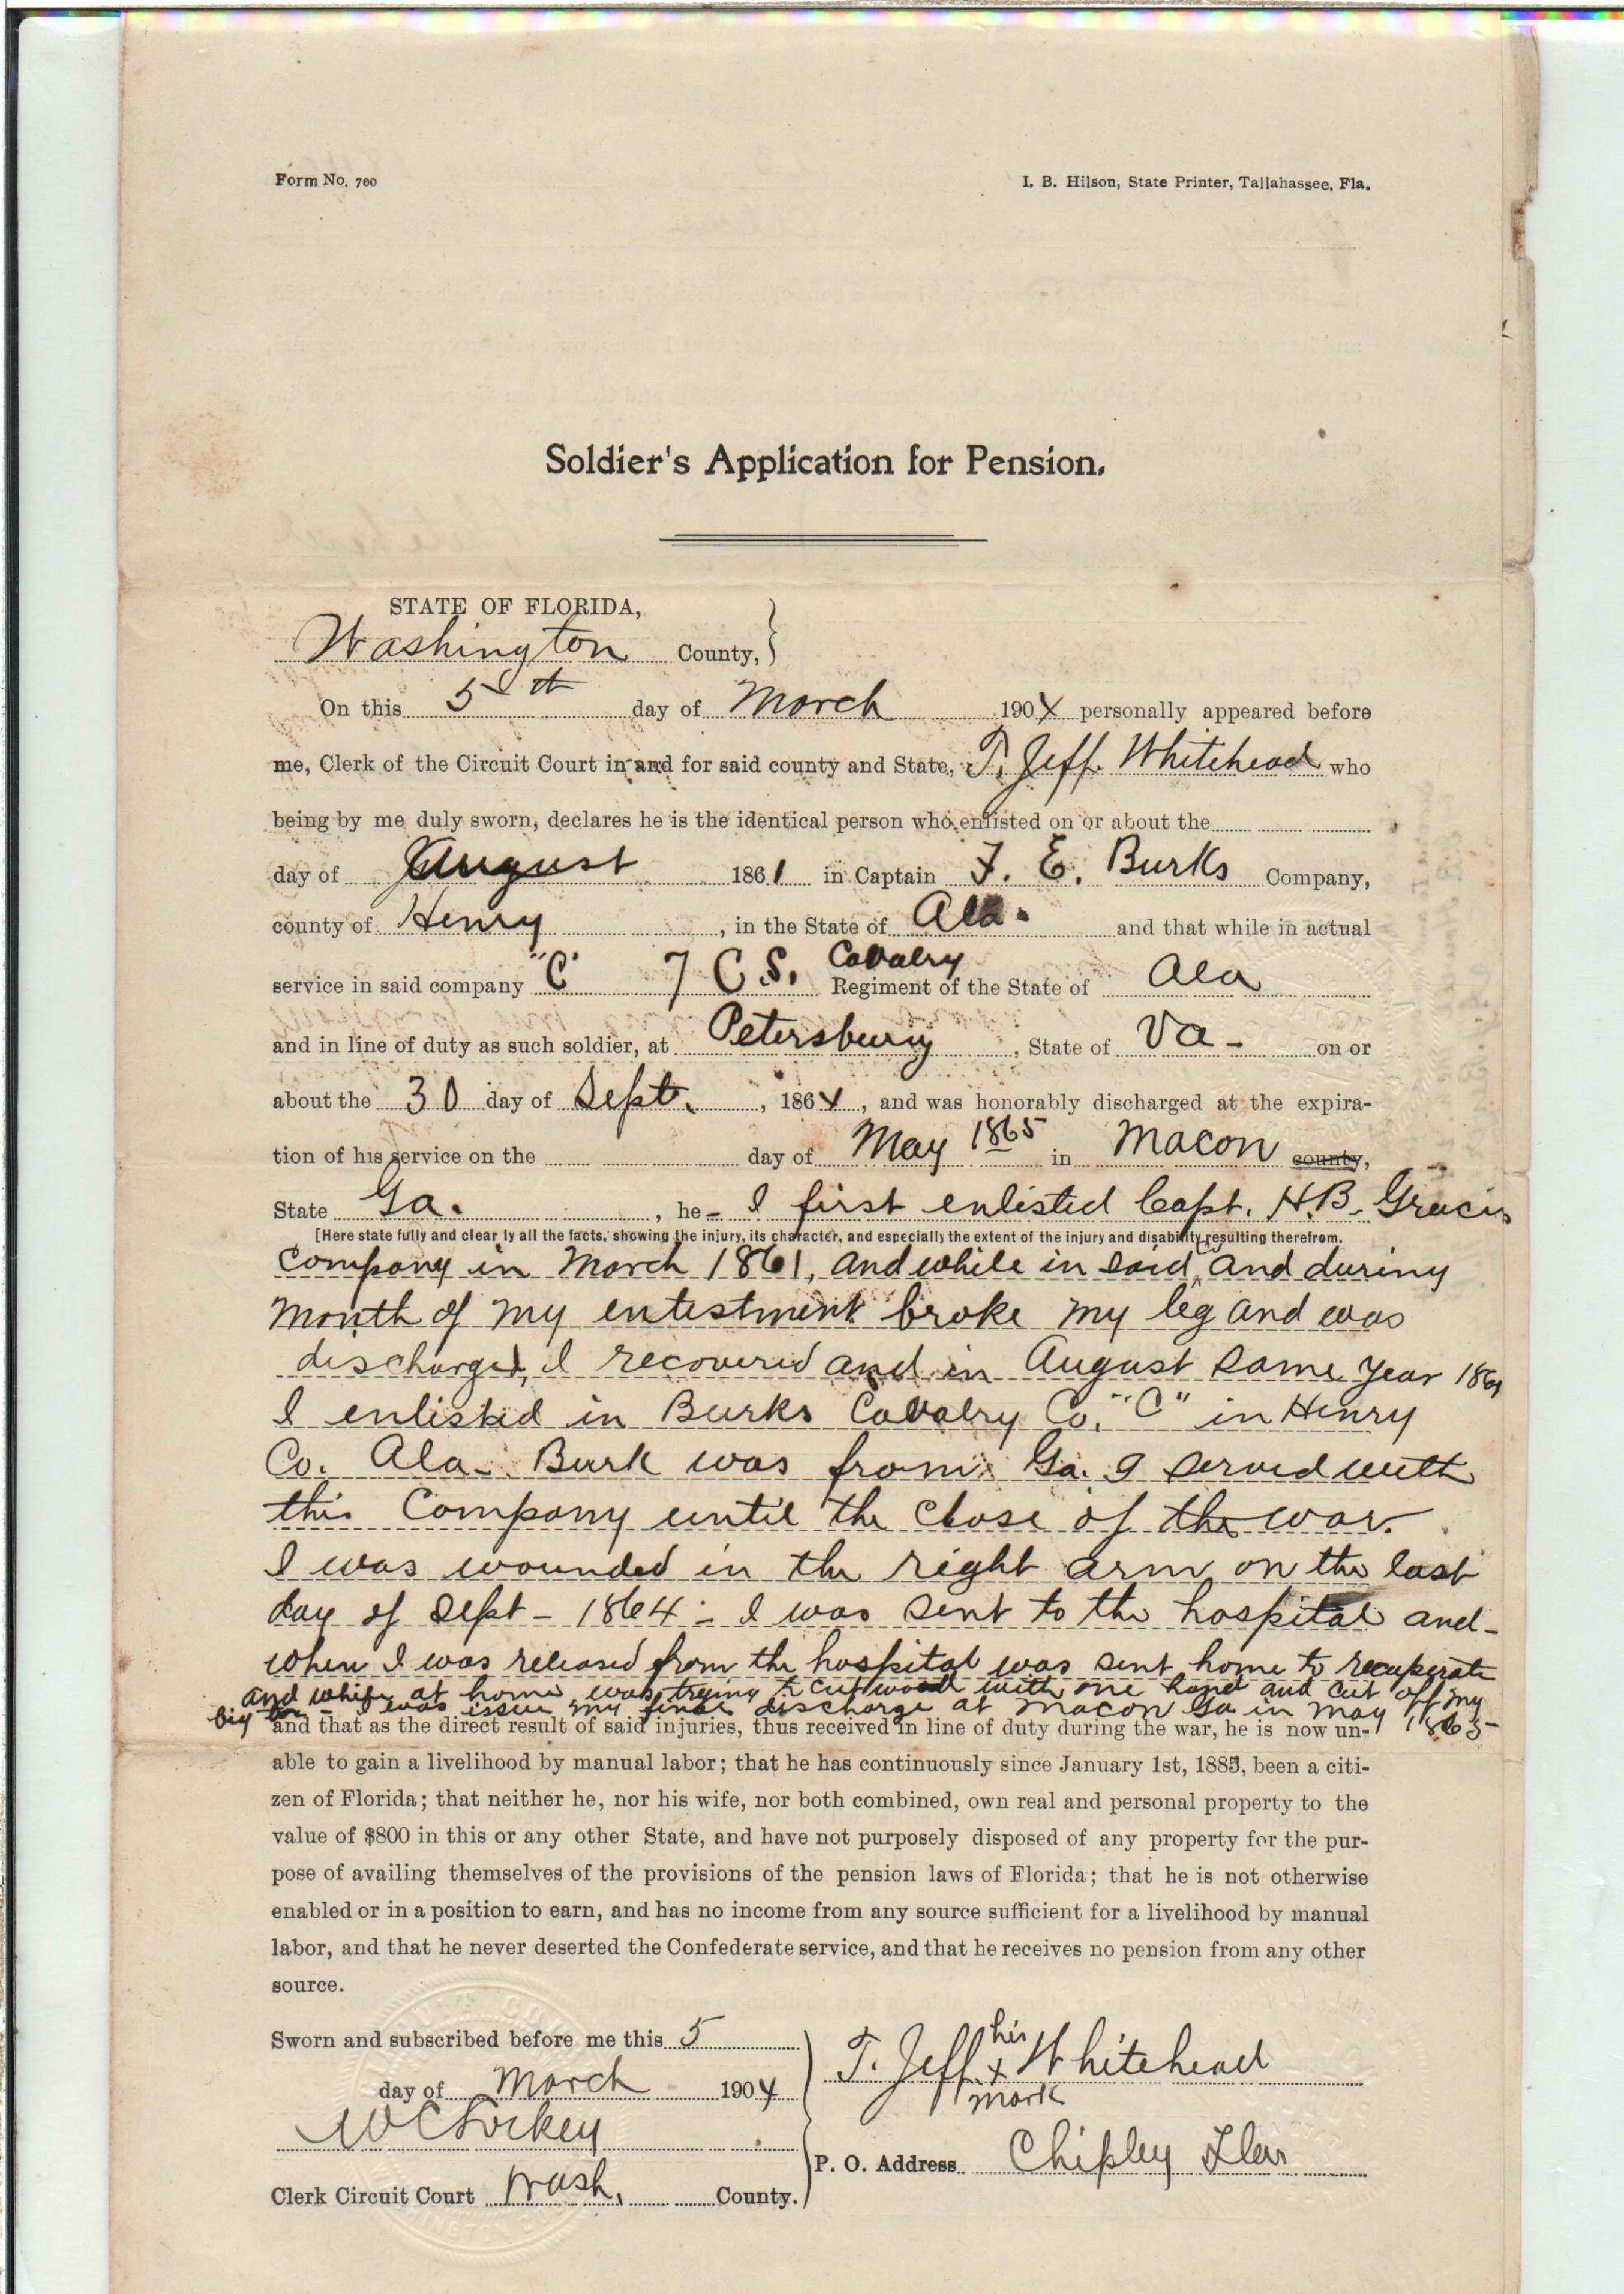 Form No. 700
I. B. Hilson, State Printer, Tallahassee, Fla.
Soldier's Application for Pension.
STATE OF FLORIDA,
Washington County,
On this 5th day of March 1904 personally appeared before
me, Clerk of the Circuit Court in and for said county and State, T. Jeff. Whitehead who
being by me duly sworn, declares he is the identical person who enlisted on or about the
day of August 1861 in Captain F. E. Burks Company,
county of Henry, in the State of Ala. and that while in actual
service in said company "C" 7 C S. Cavalry Regiment of the State of Ala
and in line of duty as such soldier, at Petersburg, State of Va- on or
about the 30 day of Sept., 1864, and was honorably discharged at the expira-
tion of his service on the day of May 1865 in Macon county,
State Ga., he- I first enlisted Capt. H.B. Gracies
[Here state fully and clearly all the facts, showing the injury, its character, and especially the extent of the injury and disability resulting therefrom.
Company in March 1861, and while in said Co and during
month of my entestment broke my leg and was
discharged, I recovered and in August same year 1861
I enlisted in Burks Cavalry Co. "C" in Henry
Co. Ala- Burk was from Ga. I served with
this Company until the close of the war.
I was wounded in the right arm on the last
day of Sept- 1864- I was sent to the hospital and-
when I was released from the hospital was sent home to recuperate
and while at home, was trying to cut wood with one hand and cut off my
big toe - I was issue my final discharge at Macon Ga in May 1865-
and that as the direct result of said injuries, thus received in line of duty during the war, he is now un-
able to gain a livelihood by manual labor; that he has continuously since January 1st, 1885, been a citi-
zen of Florida; that neither he, nor his wife, nor both combined, own real and personal property to the
value of $800 in this or any other State, and have not purposely disposed of any property for the pur-
pose of availing themselves of the provisions of the pension laws of Florida; that he is not otherwise
enabled or in a position to earn, and has no income from any source sufficient for a livelihood by manual
labor, and that he never deserted the Confederate service, and that he receives no pension from any other
source.
Sworn and subscribed before me this 5
day of March 1904
W C Lockey
Clerk Circuit Court Wash. County.
his
T. Jeff. x Whitehead
mark
P. O. Address Chipley Fla